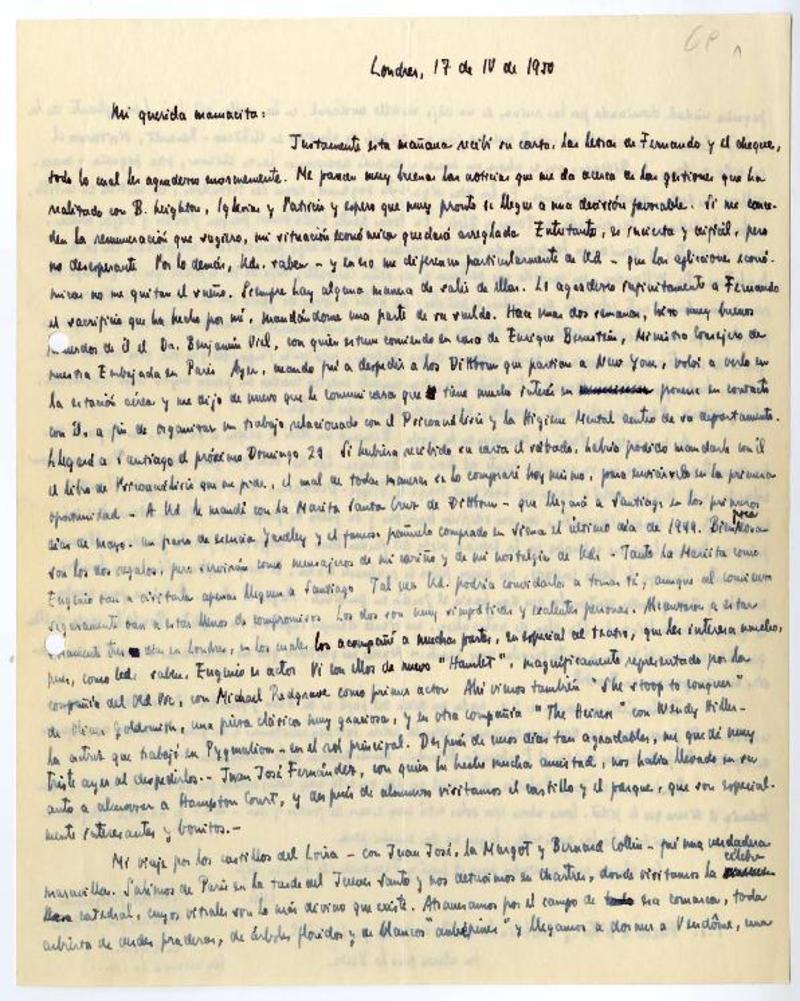 Londres, 17 de IV de 1950
Mi querida mamacita:
Justamente esta mañana recibí su carta, las letras de Fernando y el cheque,
todo lo cual les agradezco enormemente. Me parecen muy buenas las noticias que me da acerca de las gestiones que ha
realizado con B. Leighton, Iglesias y Patricio y espero que muy pronto se llegue a una decisión favorable. Si me conce-
den la remuneración que sugiero, mi situación económica quedará arreglada. Entretanto, es incierta y difícil, pero
no desesperante. Por lo demás, Uds. saben - y en eso me diferencio particularmente de Ud. - que las aflicciones econó-
micas no me quitan el sueño. Siempre hay alguna manera de salir de ellas. Le agradezco infinitamente a Fernando
el sacrificio que ha hecho por mí, mandándome una parte de su sueldo. Hace unas dos semanas, hizo muy buenos
recuerdos de él el Dr. Benjamín Viel, con quien estuve comiendo en casa de Enrique Bernstein, Ministro Consejero de
nuestra Embajada en París. Ayer, cuando fuí a despedir a los Dittborn que partían a New York, volví a verlo en
la estación aérea y me dijo de nuevo que le comunicara que tiene mucho interés en ponerse en contacto
con él, a fin de organizar un trabajo relacionado con el Psicoanálisis y la Higiene Mental dentro de su departamento.
Llegará a Santiago el próximo Domingo 23. Si hubiera recibido su carta el sábado, habría podido mandarle con él
el libro de Psicoanálisis que me pide, el cual de todas maneras se lo compraré hoy mismo, para enviárselo en la primera
oportunidad. - A Ud. le mandé con la Marita Santa Cruz de Dittborn - que llegará a Santiago en los primeros
días de mayo - un frasco de esencia Yardley y el famoso pañuelo comprado en Viena el último día de 1949. Bien poca cosa
son los dos regalos, pero servirán como mensajeros de mi cariño y de mi nostalgia de Uds. - Tanto la Marita como
Eugenio van a visitarla apenas lleguen a Santiago. Tal vez Ud. podría convidarlos a tomar té, aunque al comienzo
seguramente van a estar llenos de compromisos. Los dos son muy simpáticos y excelentes personas. Alcanzaron a estar
solamente tres días en Londres, en los cuales los acompañé a muchas partes, en especial al teatro, que les interesa mucho,
pues, como Uds. saben, Eugenio es actor. Vi con ellos de nuevo "Hamlet", magníficamente representado por la
compañía del Old Vic, con Michael Redgrave como primer actor. Ahí vimos también "She stoop to conquer"
de Oliver Goldsmith, una pieza clásica muy graciosa, y en otra compañía "The Heiress" con Wendy Hiller -
la actriz que trabajó en Pygmalion - en el rol principal. Después de unos días tan agradables, me quedé muy
triste ayer al despedirlos. - Juan José Fernández, con quien he hecho mucha amistad, nos había llevado en su
auto a almorzar a Hampton Court, y después de almuerzo visitamos el castillo y el parque, que son especial-
mente interesantes y bonitos. -
Mi viaje por los castillos del Loira - con Juan José, la Margot y Bernard Collin - fué una verdadera
maravilla. Salimos de París en la tarde del Jueves Santo y nos detuvimos en Chartres, donde visitamos la célebre
catedral, cuyos vitrales son lo más divino que existe. Atravesamos por el campo de esa comarca, toda
cubierta de verdes praderas, de árboles floridos y de blancos "aubépines" y llegamos a dormir a Vendôme, una